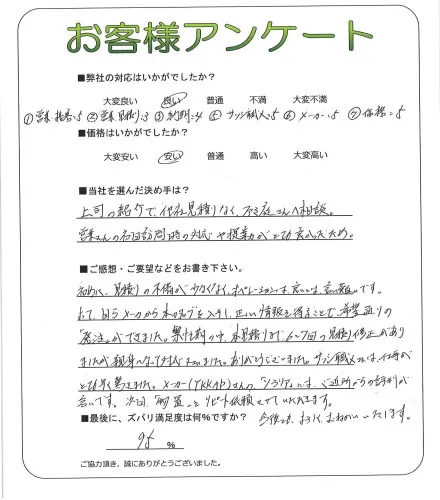 お客様アンケート
■弊社の対応はいかがでしたか?
大変良い 良い 普通 不満 大変不満
① 5 ② 3 ③ 4 ⑤ サッシ職人=5 ⑥ メーカー=5 ⑦ 価格=5
■価格はいかがでしたか?
大変安い 安い 普通 高い 大変高い
■当社を選んだ決め手は?
上司の紹介で、他社見積りなく、 さんへ相談。
営業さんの初回訪問時の対応や提案がとても良かったため。
■ご感想・ご要望などをお書き下さい。
初めに、見積りの不備が少なくなく、オペレーションは良いとは言い難いです。
メーカーから 入手し、正しい情報を得ることで希望通りの
「発注」ができました。 の中、本見積りまで6~7回の見積り修正があり
ましたが親身になって対応 ました。ありがとうございました。サッシ職人さんは、仕事が
とても早く驚きました。メーカー(YKKAP)さんの は、ご近所からの評判が
良いです。次回、 リピート依頼させていただきます。
■最後に、ズバリ満足度は何%ですか? 今後とも、よろしくおねがいいたします。
%
ご協力頂き、誠にありがとうございました。